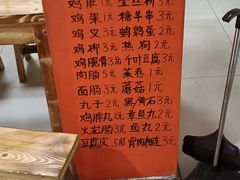 鸡排1元 金丝柳3元
鸡架1元 糖羊串3元
鸡叉3元 鹌鹑蛋2元
鸡柳3元 热狗2元
鸡脆骨3元 千叶豆腐3元
肉肠5元 菜卷1元
面肠3元 蘑菇1元
丸子2元 黑黄石3元
鸡脖丸 章鱼丸2元
火龙肠3元 鱼丸2元
豆腐皮5角 骨肉相连3元